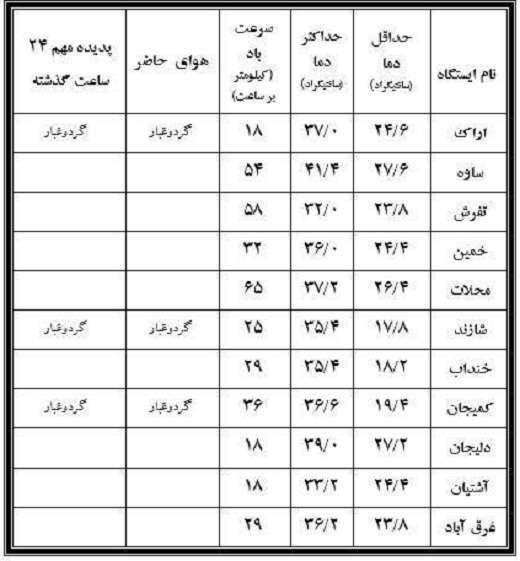 نام ایستگاه | حداقل دما (سانتیگراد) | حداکثر دما (سانتیگراد) | سرعت باد (کیلومتر بر ساعت) | هوای حاضر | پدیده مهم ۲۴ ساعت گذشته
اراک | ۲۴/۶ | ۳۷/۰ | ۱۸ | گردوغبار | گردوغبار
ساوه | ۲۷/۶ | ۴۱/۴ | ۵۴
تفرش | ۲۳/۸ | ۳۲/۰ | ۵۸
خمین | ۲۴/۴ | ۳۶/۰ | ۳۲
محلات | ۲۶/۴ | ۳۷/۲ | ۶۵
شازند | ۱۷/۸ | ۳۵/۴ | ۲۵ | گردوغبار | گردوغبار
خنداب | ۱۸/۲ | ۳۵/۴ | ۲۹
کمیجان | ۱۹/۴ | ۳۶/۶ | ۳۶ | گردوغبار | گردوغبار
دلیجان | ۲۷/۲ | ۳۹/۰ | ۱۸
آشتیان | ۲۴/۴ | ۳۳/۲ | ۱۸
غرق آباد | ۲۳/۸ | ۳۶/۲ | ۲۹